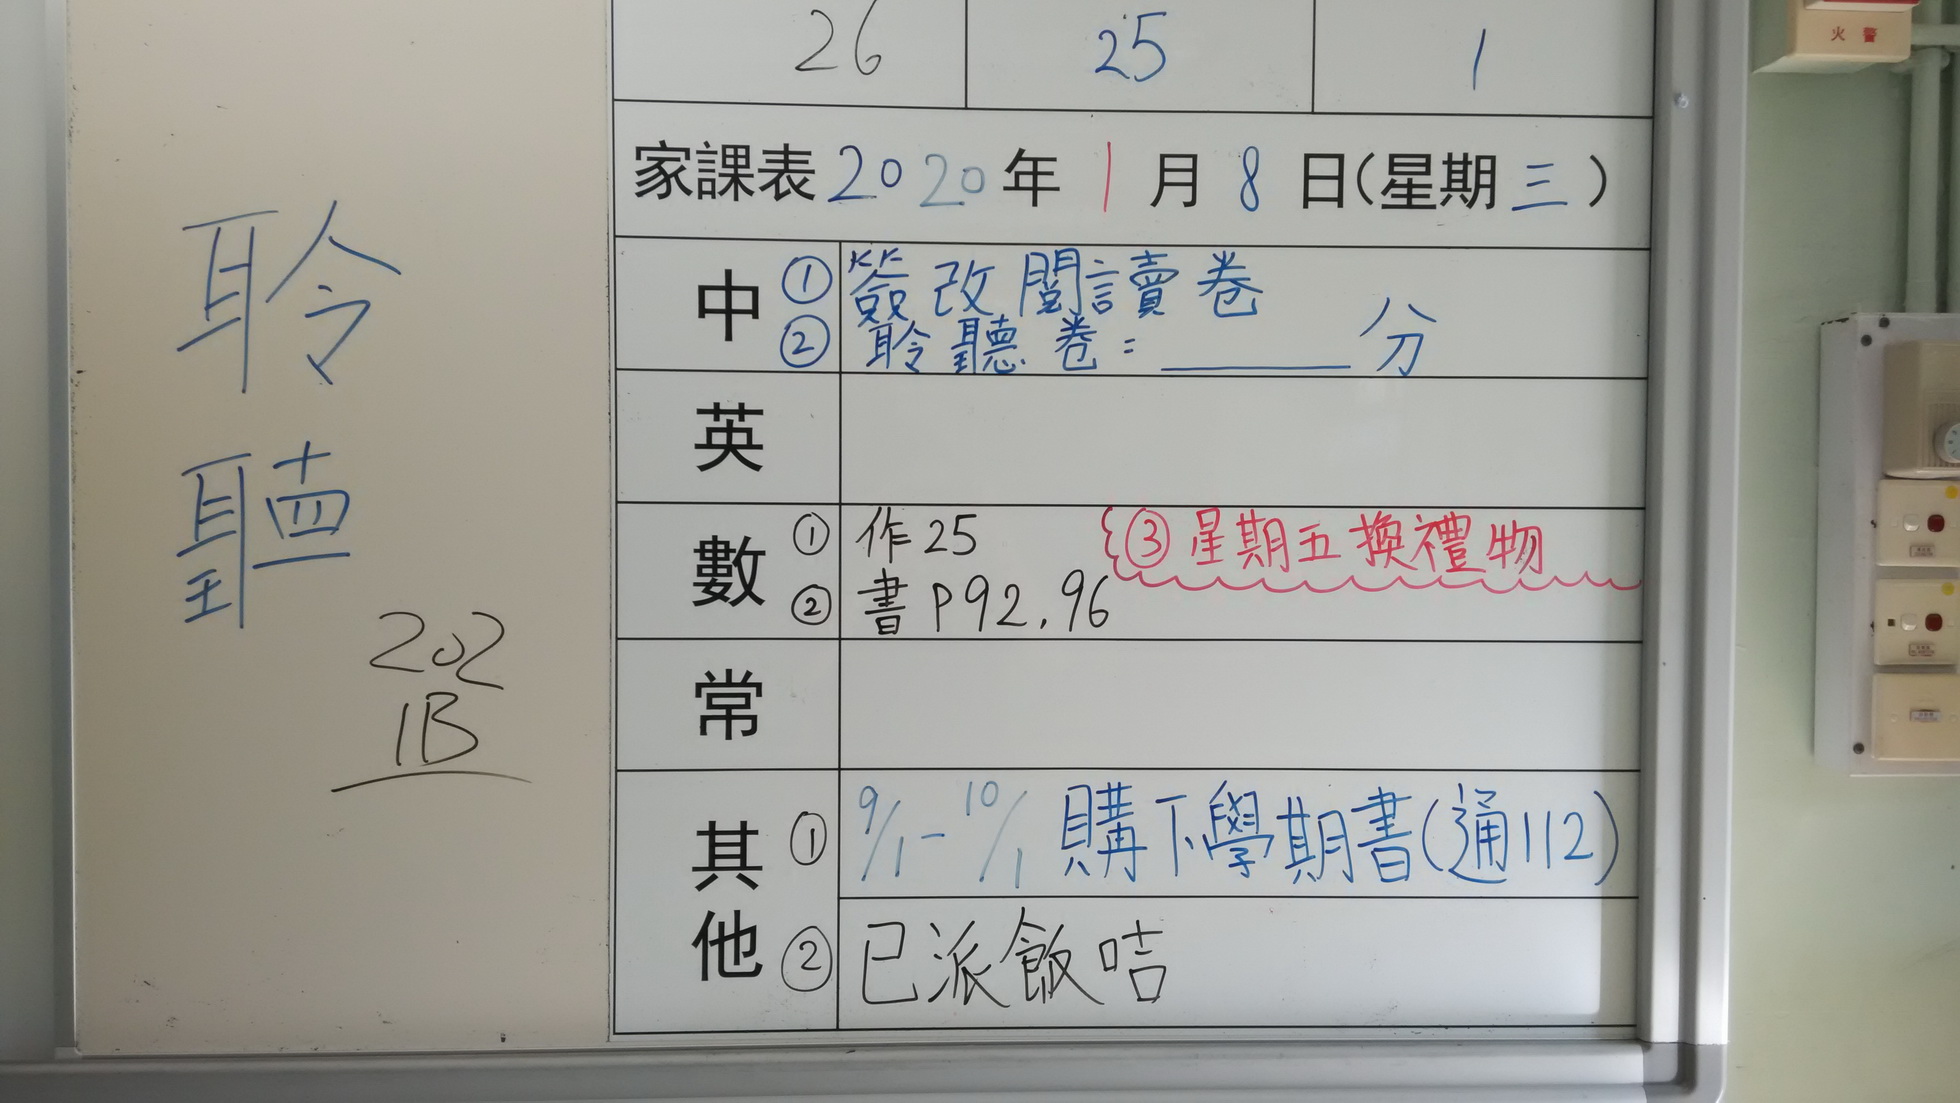 26 25 1
火警
家課表 2020年1月8日(星期三)
中 ① 簽改閱讀卷
② 聆聽卷：______分
英
數 ① 作25 ③ 星期五換禮物
② 書P92.96
常
其他 ① 9/1-10/1 購下學期書(通112)
② 已派飯咭
聆
202
1B